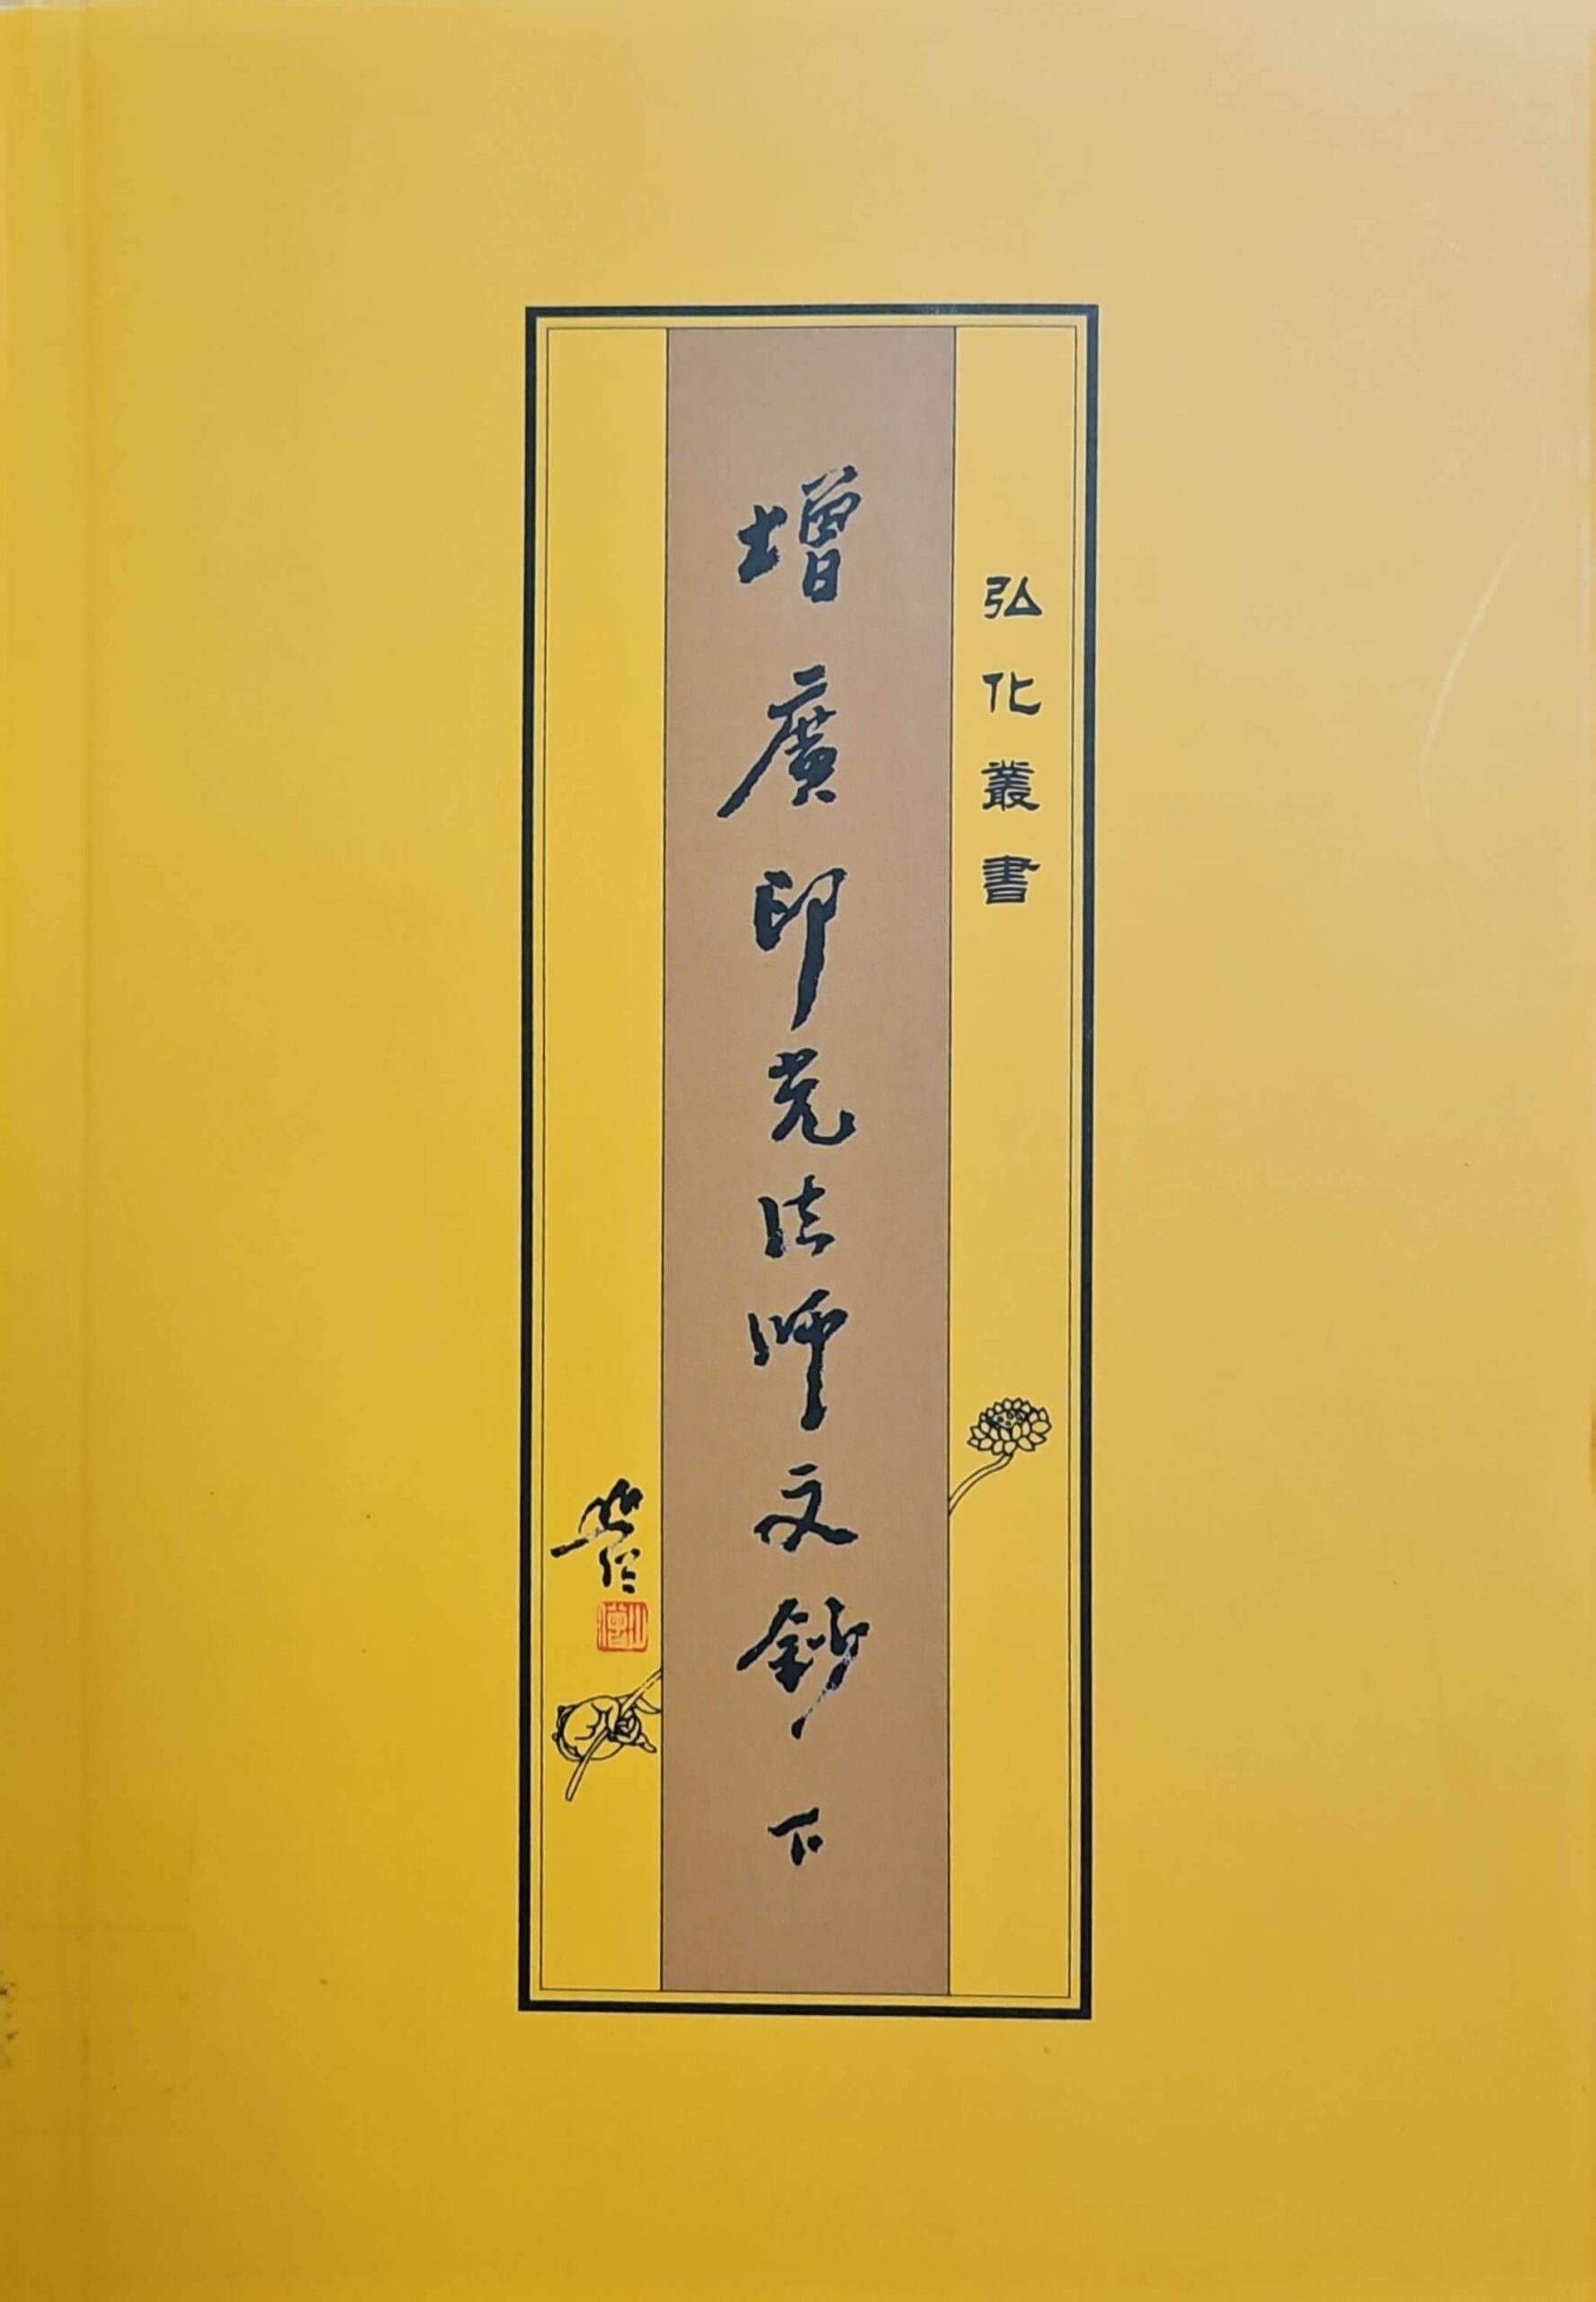 弘化叢書
增廣印光法師文鈔 下